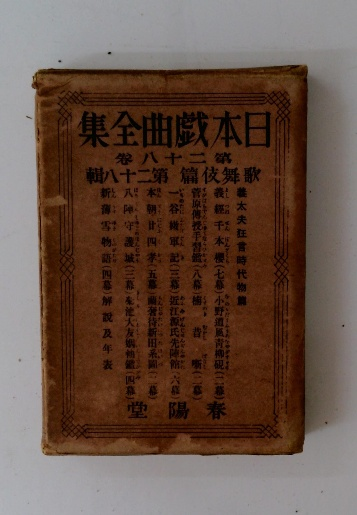 日本戯曲全集
第二十八巻
歌舞伎篇 第二十八輯
義太夫狂言時代物篇
義經千本櫻(七幕)小野道風青柳硯(二幕)
菅原傳授手習鑑(八幕)楠昔噺(二幕)
一谷嫩軍記(三幕)近江源氏先陣館(六幕)
本朝廿四孝(五幕)蘭奢待新田系圖(一幕)
八陣守護城(三幕)菊池大友姻袖鑑(四幕)
新薄雪物語(四幕)解説及年表
春陽堂